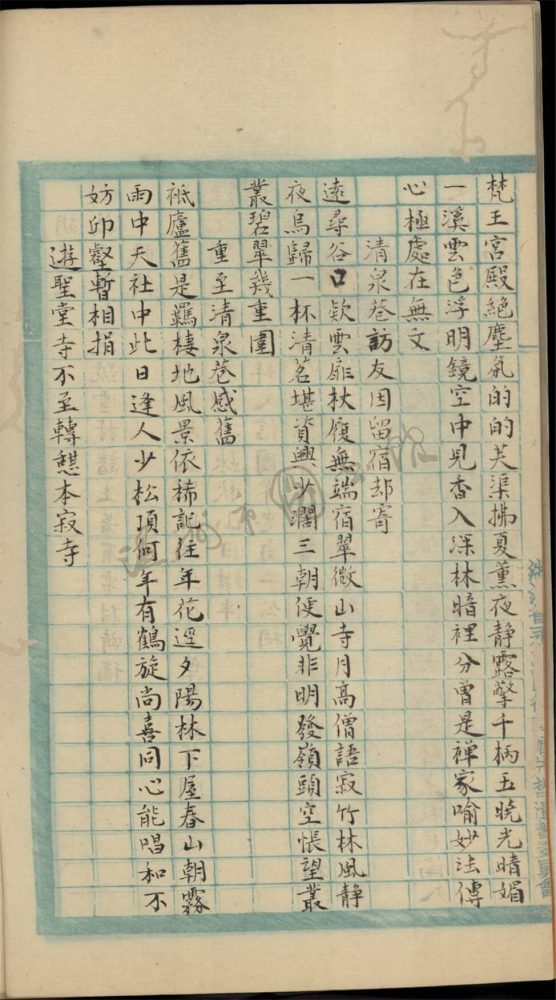 梵王宮殿絕塵氛的的芙渠拂夏薰夜静露擎千柄玉曉光晴媚
一溪雲色浮明鏡空中見香入深林暗裡分曾是禅家喻妙法傳
心極處在無文
清泉菴訪友因留宿却寄
遠尋谷口欵雲扉杖履無端宿翠微山寺月高僧語寂竹林風静
夜烏歸一杯清茗堪資興少濶三朝便覺非明發嶺頭空悵望叢
叢碧翠幾重圍
重至清泉菴感舊
祗廬舊是羈棲地風景依稀記往年花逕夕陽林下屋春山朝霧
雨中天社中此日逢人少松頂何年有鶴旋尚喜同心能唱和不
妨邱壑暫相捐
遊聖堂寺不至轉憇本寂寺